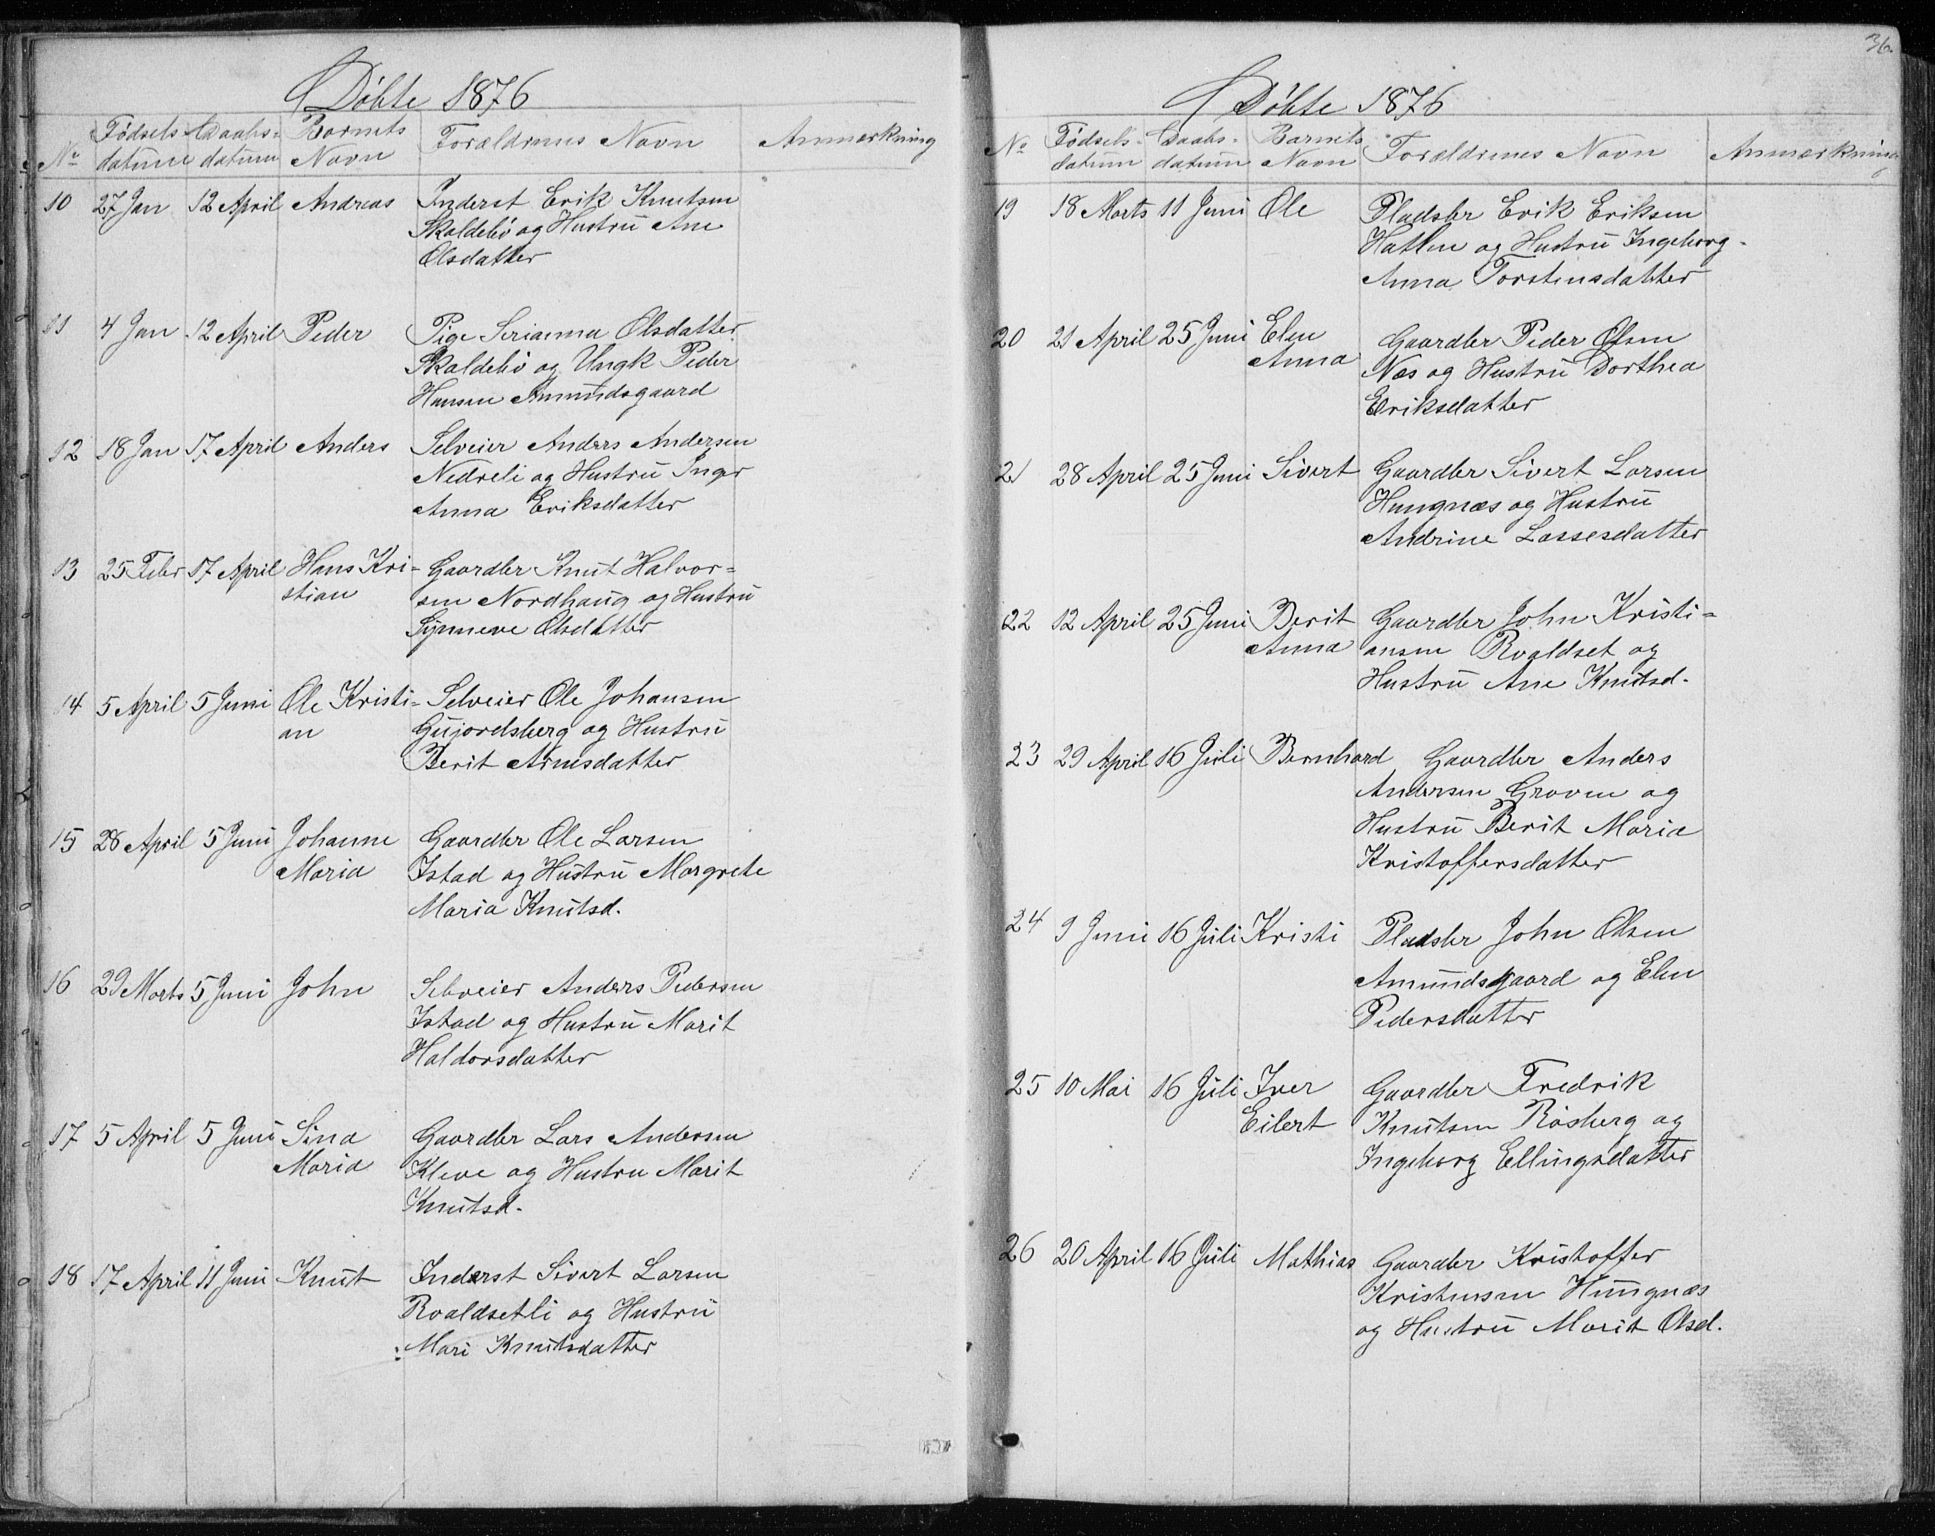 Døbte 1876
No Fødselsdatum Daabsdatum Barnets Navn Forældrenes Navn Anmærkning
10 27 Jan 12 April Andreas Inderst Erik Knutsen
Skaldebø og Hustrü Ane
Olsdatter
11 4 Jan 12 April Peder Pige Serianna Olsdatter
Skaldebø og Ungk Peder
Hansen Amundsgaard
12 18 Jan 17 April Anders Selveier Anders Andersen
Nedreli og Hustrü Inger
Anna Eriksdatter
13 25 Febr 17 April Hans Kri- Gaardbr Knut Halvor=
stian sen Nordhaug og Hustrü
Synneve Olsdatter
14 5 April 5 Juni Ole Kristi- Selveier Ole Johansen
an Gujordsberg og Hustrü
Berit Arnesdatter
15 28 April 5 Juni Johanne Gaardbr Ole Larsen
Maria Istad og Hüstrü Margrete
Maria Knütsd.
16 29 Marts 5 Juni John Selveier Anders Pedersen
Istad og Hustrü Marit
Haldorsdatter
17 5 April 5 Juni Sina Gaardbr Lars Andersen
Maria Kleve og Hustru Marit
Knutsd.
18 17 April 11 Juni Knut Inderst Sivert Larsen
Roaldsetli og Hustrü
Mari Knutsdatter
36.
Døbte 1876
No Fødsels-datum Daabs-datum Barnets Navn Forældrenes Navn Anmærkning
19 18 Marts 11 Juni Ole Pladsbr Erik Eriksen
Hatlen og Hustrü Ingeborg-
Anna Torstensdatter
20 21 April 25 Juni Elen Gaardbr Peder Olsen
Anna Næs og Hustrü Dorthea
Eriksdatter
21 28 April 25 Juni Sivert Gaardbr Sivert Larsen
Hungnæs og Hustrü
Andrine Lassesdatter
22 12 April 25 Juni Berit Gaardbr John Kristi=
Anna ansen Roaldset og
Hustrü Ane Knutsd.
23 29 April 16 Jüli Bernhard Gaardbr Anders
Andersen Groven og
Hustrü Berit Maria
Kristoffersdatter
24 9 Juni 16 Jüli Kristi Pladsbr John Olsen
Amundsgaard og Elen
Pedersdatter
25 10 Mai 16 Jüli Iver Gaardbr Fredrik
Eilert Knutsen Røsberg og
Ingeborg Ellingsdatter
26 20 April 16 Jüli Mathias Gaardbr Kristoffer
Kristensen Hüngnæs
og Hustrü Marit Olsd.